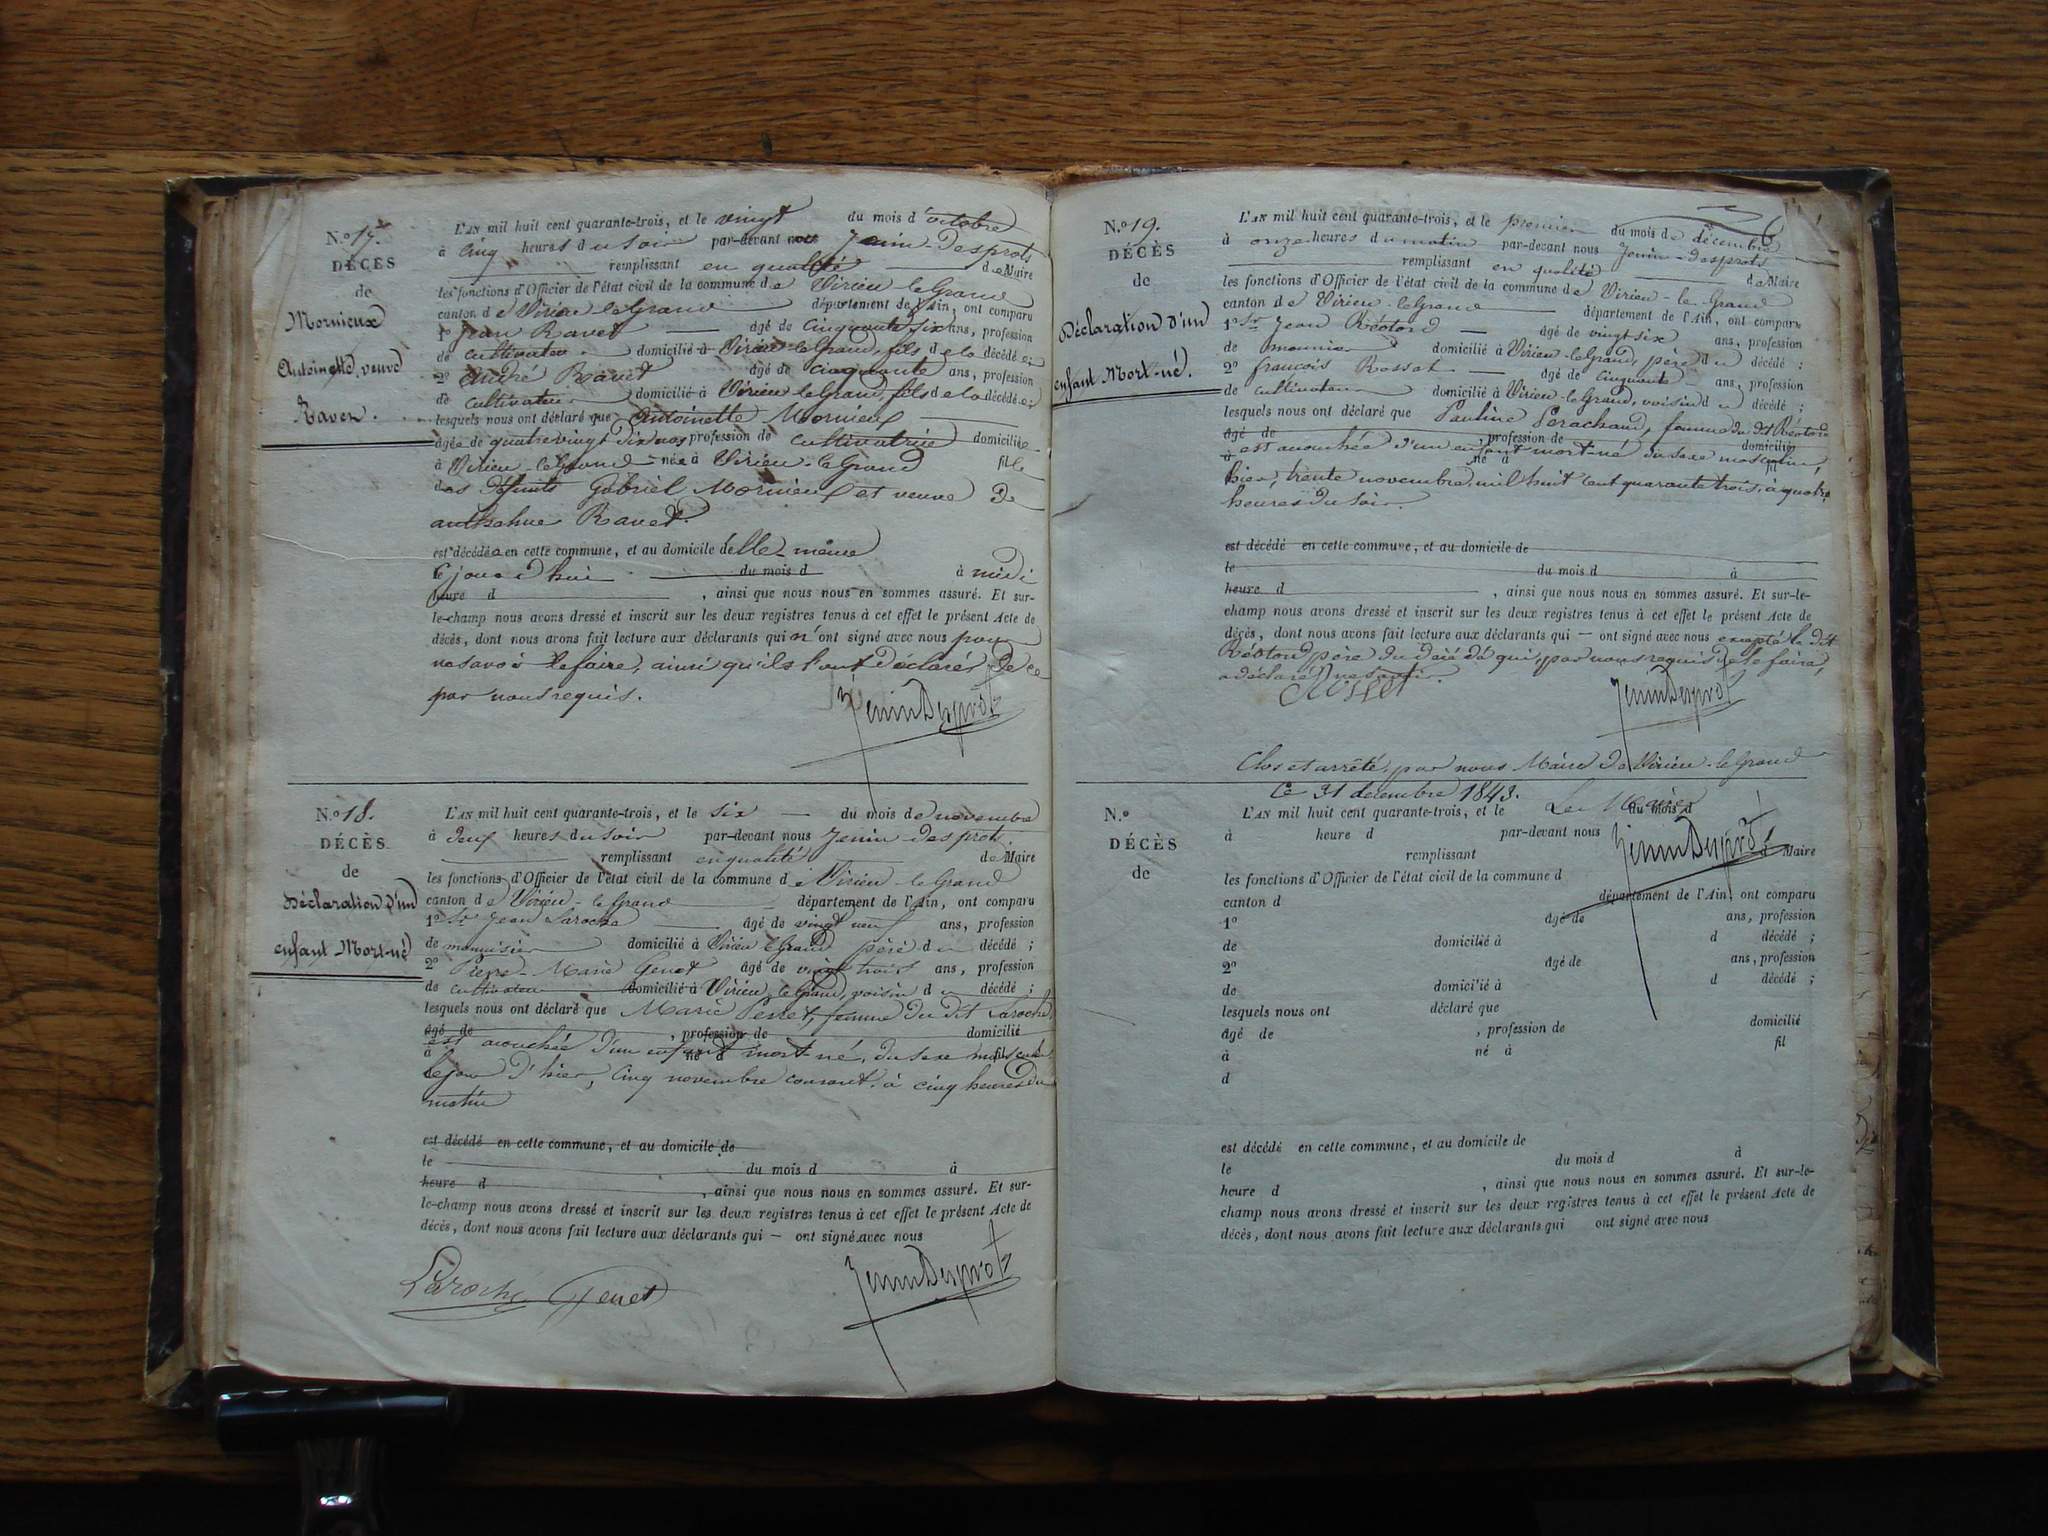 N.o 17.
DÉCÈS
de
Mornieux
Antoinette, veuve
Ravet.
L'AN mil huit cent quarante-trois, et le vingt du mois d'octobre
à cinq heures du soir par-devant nous Jenin-Desprots
remplissant en qualité de Maire
les fonctions d'Officier de l'état civil de la commune de Virieu le Grand
canton de Virieu-le Grand département de l'Ain, ont comparu
1o Jean Ravet âgé de cinquante six ans, profession
de cultivateur domicilié à Virieu-le Grand, fils de la décédée;
2o André Ravet âgé de cinquante ans, profession
de cultivateur domicilié à Virieu le Grand, fils de la décédée;
lesquels nous ont déclaré que Antoinette Mornieux
âgée de quatre vingt dix ans profession de cultivatrice domiciliée
à Virieu-le Grand née à Virieu-le Grand fille
des défunts Gabriel Mornieux et veuve de
Ravet.
est décédée en cette commune, et au domicile d'elle-même
ce jourd'hui du mois d à midi
heure d , ainsi que nous nous en sommes assuré. Et sur-
le-champ nous avons dressé et inscrit sur les deux registres tenus à cet effet le présent Acte de
décès, dont nous avons fait lecture aux déclarants qui n'ont signé avec nous pour
ne savoir le faire, ainsi qu'ils l'ont déclaré, de ce
par nous requis.
Jenin Desprots
N.o 18.
DÉCÈS
de
Déclaration d'un
enfant Mort-né
L'AN mil huit cent quarante-trois, et le six du mois de novembre
à neuf heures du soir par-devant nous Jenin-Desprots
remplissant en qualité de Maire
les fonctions d'Officier de l'état civil de la commune de Virieu le Grand
canton de Virieu-le Grand département de l'Ain, ont comparu
1o Sr Jean Laroche âgé de vingt neuf ans, profession
de menuisier domicilié à Virieu le Grand père du décédé;
2o Pierre-Marie Genet âgé de vingt trois ans, profession
de cultivateur domicilié à Virieu le Grand, voisin du décédé;
lesquels nous ont déclaré que Marie Perret, femme du dit Laroche,
âgé de , profession de domicilié
est accouchée d'un enfant mort-né, du sexe masculin
à né à fil
le jour d'hier, cinq novembre courant, à cinq heures du
matin
est décédé en cette commune, et au domicile de
le du mois d à
heure d , ainsi que nous nous en sommes assuré. Et sur-
le-champ nous avons dressé et inscrit sur les deux registres tenus à cet effet le présent Acte de
décès, dont nous avons fait lecture aux déclarants qui — ont signé avec nous
Laroche Genet Jenin Desprots
N.o 19.
DÉCÈS
de
Déclaration d'un
enfant Mort-né.
L'AN mil huit cent quarante-trois, et le premier du mois de décembre
à onze heures du matin par-devant nous Jenin-Desprots
remplissant en qualité de Maire
les fonctions d'Officier de l'état civil de la commune de Virieu-le-Grand
canton de Virieu-le Grand département de l'Ain, ont comparu
1o Sr Jean Réotord âgé de vingt six ans, profession
de meunier domicilié à Virieu-le Grand, père du décédé;
2o françois Rosset âgé de cinquante ans, profession
de cultivateur domicilié à Virieu-le Grand, voisin du décédé;
lesquels nous ont déclaré que Pauline Perachaud, femme du dit Réotord
âgé de profession de domicilié
est accouchée d'un enfant mort-né du sexe masculin,
à né à fil
hier, trente novembre, mil huit cent quarante trois, à quatre
heures du soir.
est décédé en cette commune, et au domicile de
le du mois d à
heure d , ainsi que nous nous en sommes assuré. Et sur-le-
champ nous avons dressé et inscrit sur les deux registres tenus à cet effet le présent Acte de
décès, dont nous avons fait lecture aux déclarants qui — ont signé avec nous excepté le dit
Réotord, père du décédé qui, par nous requis de le faire,
a déclaré ne savoir.
Rosset Jenin Desprots
Clos et arrêté, par nous Maire de Virieu-le Grand
Ce 31 décembre 1843.
Le Maire
Jenin Desprots
N.o
DÉCÈS
de
L'AN mil huit cent quarante-trois, et le du mois d
à heure d par-devant nous
remplissant d Maire
les fonctions d'Officier de l'état civil de la commune d
canton d département de l'Ain, ont comparu
1o âgé de ans, profession
de domicilié à d décédé;
2o âgé de ans, profession
de domicilié à d décédé;
lesquels nous ont déclaré que
âgé de , profession de domicilié
à né à fil
d
est décédé en cette commune, et au domicile de
le du mois d à
heure d , ainsi que nous nous en sommes assuré. Et sur-le-
champ nous avons dressé et inscrit sur les deux registres tenus à cet effet le présent Acte de
décès, dont nous avons fait lecture aux déclarants qui ont signé avec nous